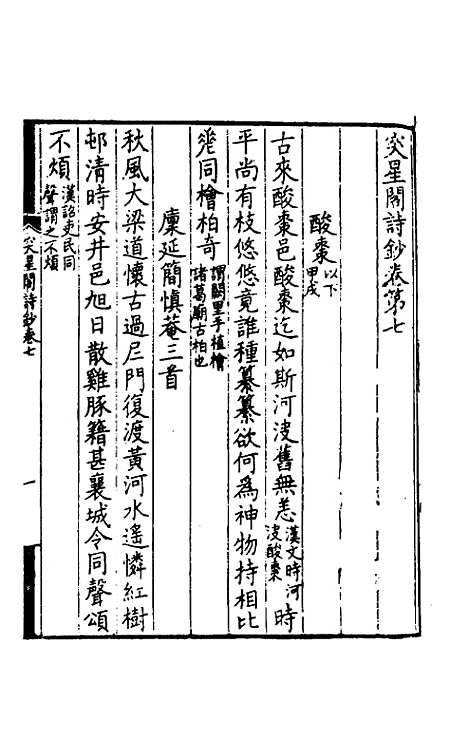 突星閣詩鈔卷第七
酸棗以下甲戌
古來酸棗邑酸棗迄如斯河決舊無恙漢文時河決酸棗時
平尚有枝悠悠竟誰種纂纂欲何爲神物持相比
㲋同檜柏奇謂闕里手植檜諸葛廟古柏也
廩延簡慎菴三首
秋風大梁道懷古過尼門復渡黃河水遙憐紅樹
邨清時安井邑旭日散雞豚籍甚襄城令同聲頌
不煩漢詔吏民同聲謂之不煩
突星閣詩鈔卷七
一